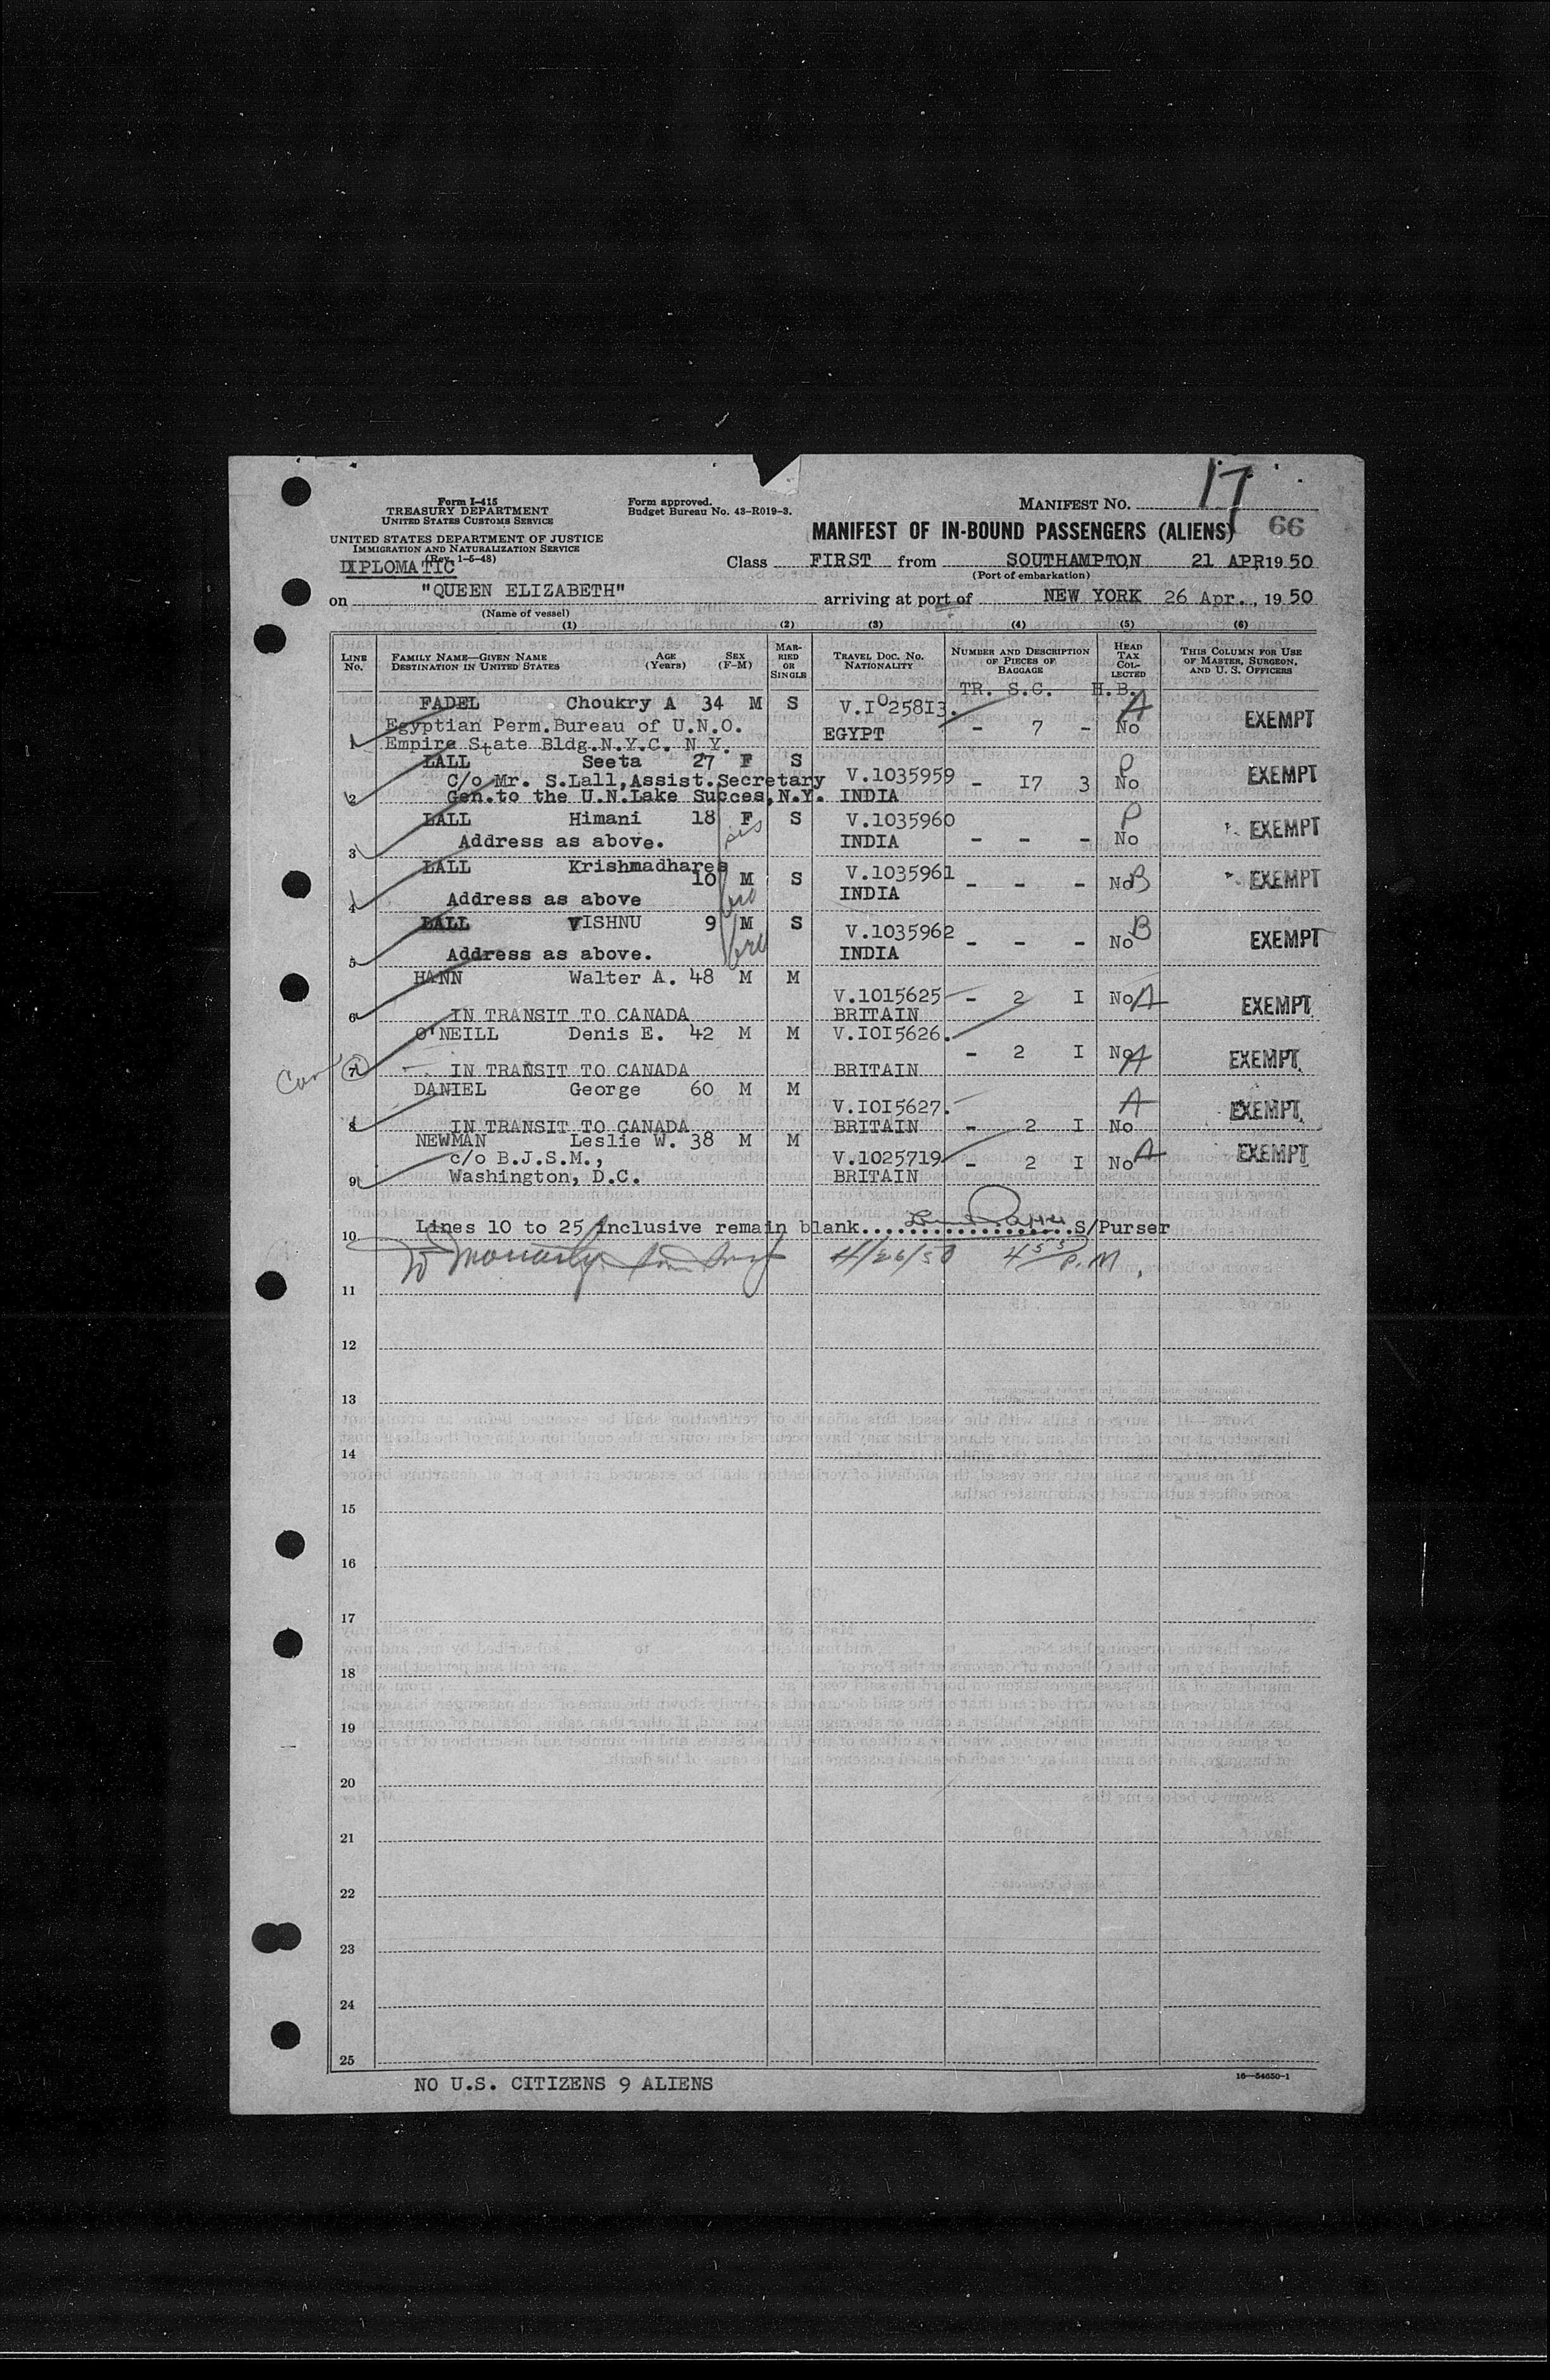 Form I-415
TREASURY DEPARTMENT
UNITED STATES CUSTOMS SERVICE
UNITED STATES DEPARTMENT OF JUSTICE
IMMIGRATION AND NATURALIZATION SERVICE
(Rev. 1-5-48)
DIPLOMATIC
Form approved.
Budget Bureau No. 43-R019-3.
MANIFEST NO. 17
MANIFEST OF IN-BOUND PASSENGERS (ALIENS) 66
Class FIRST from SOUTHAMPTON 21 APR 19 50
(Port of embarkation)
on "QUEEN ELIZABETH" arriving at port of NEW YORK 26 Apr., 19 50
(Name of vessel)
(1) (2) (3) (4) (5) (6)
LINE No. FAMILY NAME—GIVEN NAME DESTINATION IN UNITED STATES AGE (Years) SEX (F-M) MARRIED OR SINGLE TRAVEL DOC. NO. NATIONALITY NUMBER AND DESCRIPTION OF PIECES OF BAGGAGE HEAD TAX COLLECTED THIS COLUMN FOR USE OF MASTER, SURGEON, AND U. S. OFFICERS
TR. S.C. H.B.
FADEL Choukry A 34 M S V.I025813. A EXEMPT
Egyptian Perm.Bureau of U.N.O. EGYPT - 7 - No
1 Empire State Bldg.N.Y.C. N.Y.
LALL Seeta 27 F S P
C/o Mr. S.Lall,Assist.Secretary V.1035959 - I7 3 No EXEMPT
2 Gen.to the U.N.Lake Succes,N.Y. INDIA
LALL Himani 18 F S V.1035960 P EXEMPT
sis
3 Address as above. INDIA - - - No
LALL Krishmadhares
10 M S V.1035961 - - - No B EXEMPT
bro
4 Address as above INDIA
LALL VISHNU 9 M S V.1035962 - - - No B EXEMPT
bro
5 Address as above. INDIA
HANN Walter A. 48 M M
V.1015625 - 2 I No A EXEMPT
6 IN TRANSIT TO CANADA BRITAIN
O'NEILL Denis E. 42 M M V.IOI5626.
- 2 I No A EXEMPT
Can 7 IN TRANSIT TO CANADA BRITAIN
DANIEL George 60 M M
V.IOI5627. A EXEMPT
8 IN TRANSIT TO CANADA BRITAIN - 2 I No
NEWMAN Leslie W. 38 M M
c/o B.J.S.M., V.1025719 - 2 I No A EXEMPT
9 Washington, D.C. BRITAIN
10 Lines 10 to 25 inclusive remain blank.... S/Purser
4/26/50 4 55 P.M.
11
12
13
14
15
16
17
18
19
20
21
22
23
24
25
NO U.S. CITIZENS 9 ALIENS
16—54650-1